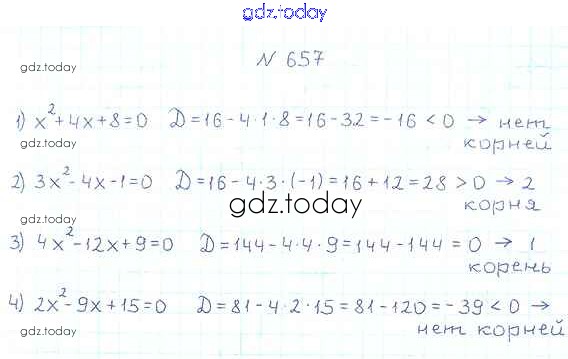 gdz.today
№ 657
gdz.today
1) x² + 4x + 8 = 0 D = 16 - 4·1·8 = 16 - 32 = -16 < 0 → нет
gdz.today
корней
2) 3x² - 4x - 1 = 0 D = 16 - 4·3·(-1) = 16 + 12 = 28 > 0 → 2
gdz.today
корня
gdz.today
3) 4x² - 12x + 9 = 0 D = 144 - 4·4·9 = 144 - 144 = 0 → 1
gdz.today
корень
4) 2x² - 9x + 15 = 0 D = 81 - 4·2·15 = 81 - 120 = -39 < 0 →
gdz.today
нет корней